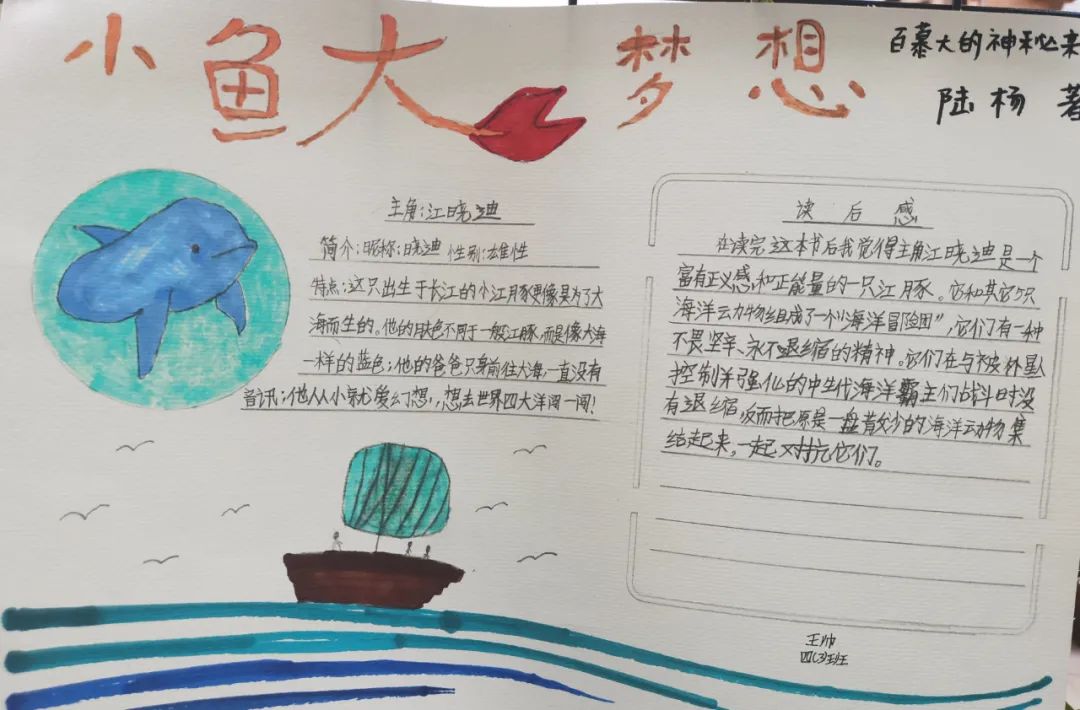 小鱼大梦想
百慕大的神秘来
陆杨 著
主角:江晓迪
简介:昵称:晓迪 性别:雄性
特点:这只出生于长江的小江豚更像是为了大
海而生的。他的肤色不同于一般江豚,而是像大海
一样的蓝色;他的爸爸只身前往大海,一直没有
音讯;他从小就爱幻想,想去世界四大洋闯一闯!
读后感
在读完这本书后我觉得主角江晓迪是一个
富有正义感和正能量的一只江豚。它和其它5只
海洋动物组成了一个“海洋冒险团”,它们有一种
不畏坚辛、永不退缩的精神。它们在与被外星人
控制并强化的中生代海洋霸主们战斗时没
有退缩,反而把原是一盘散沙的海洋动物集
结起来,一起对抗它们。
王帅
四(3)班